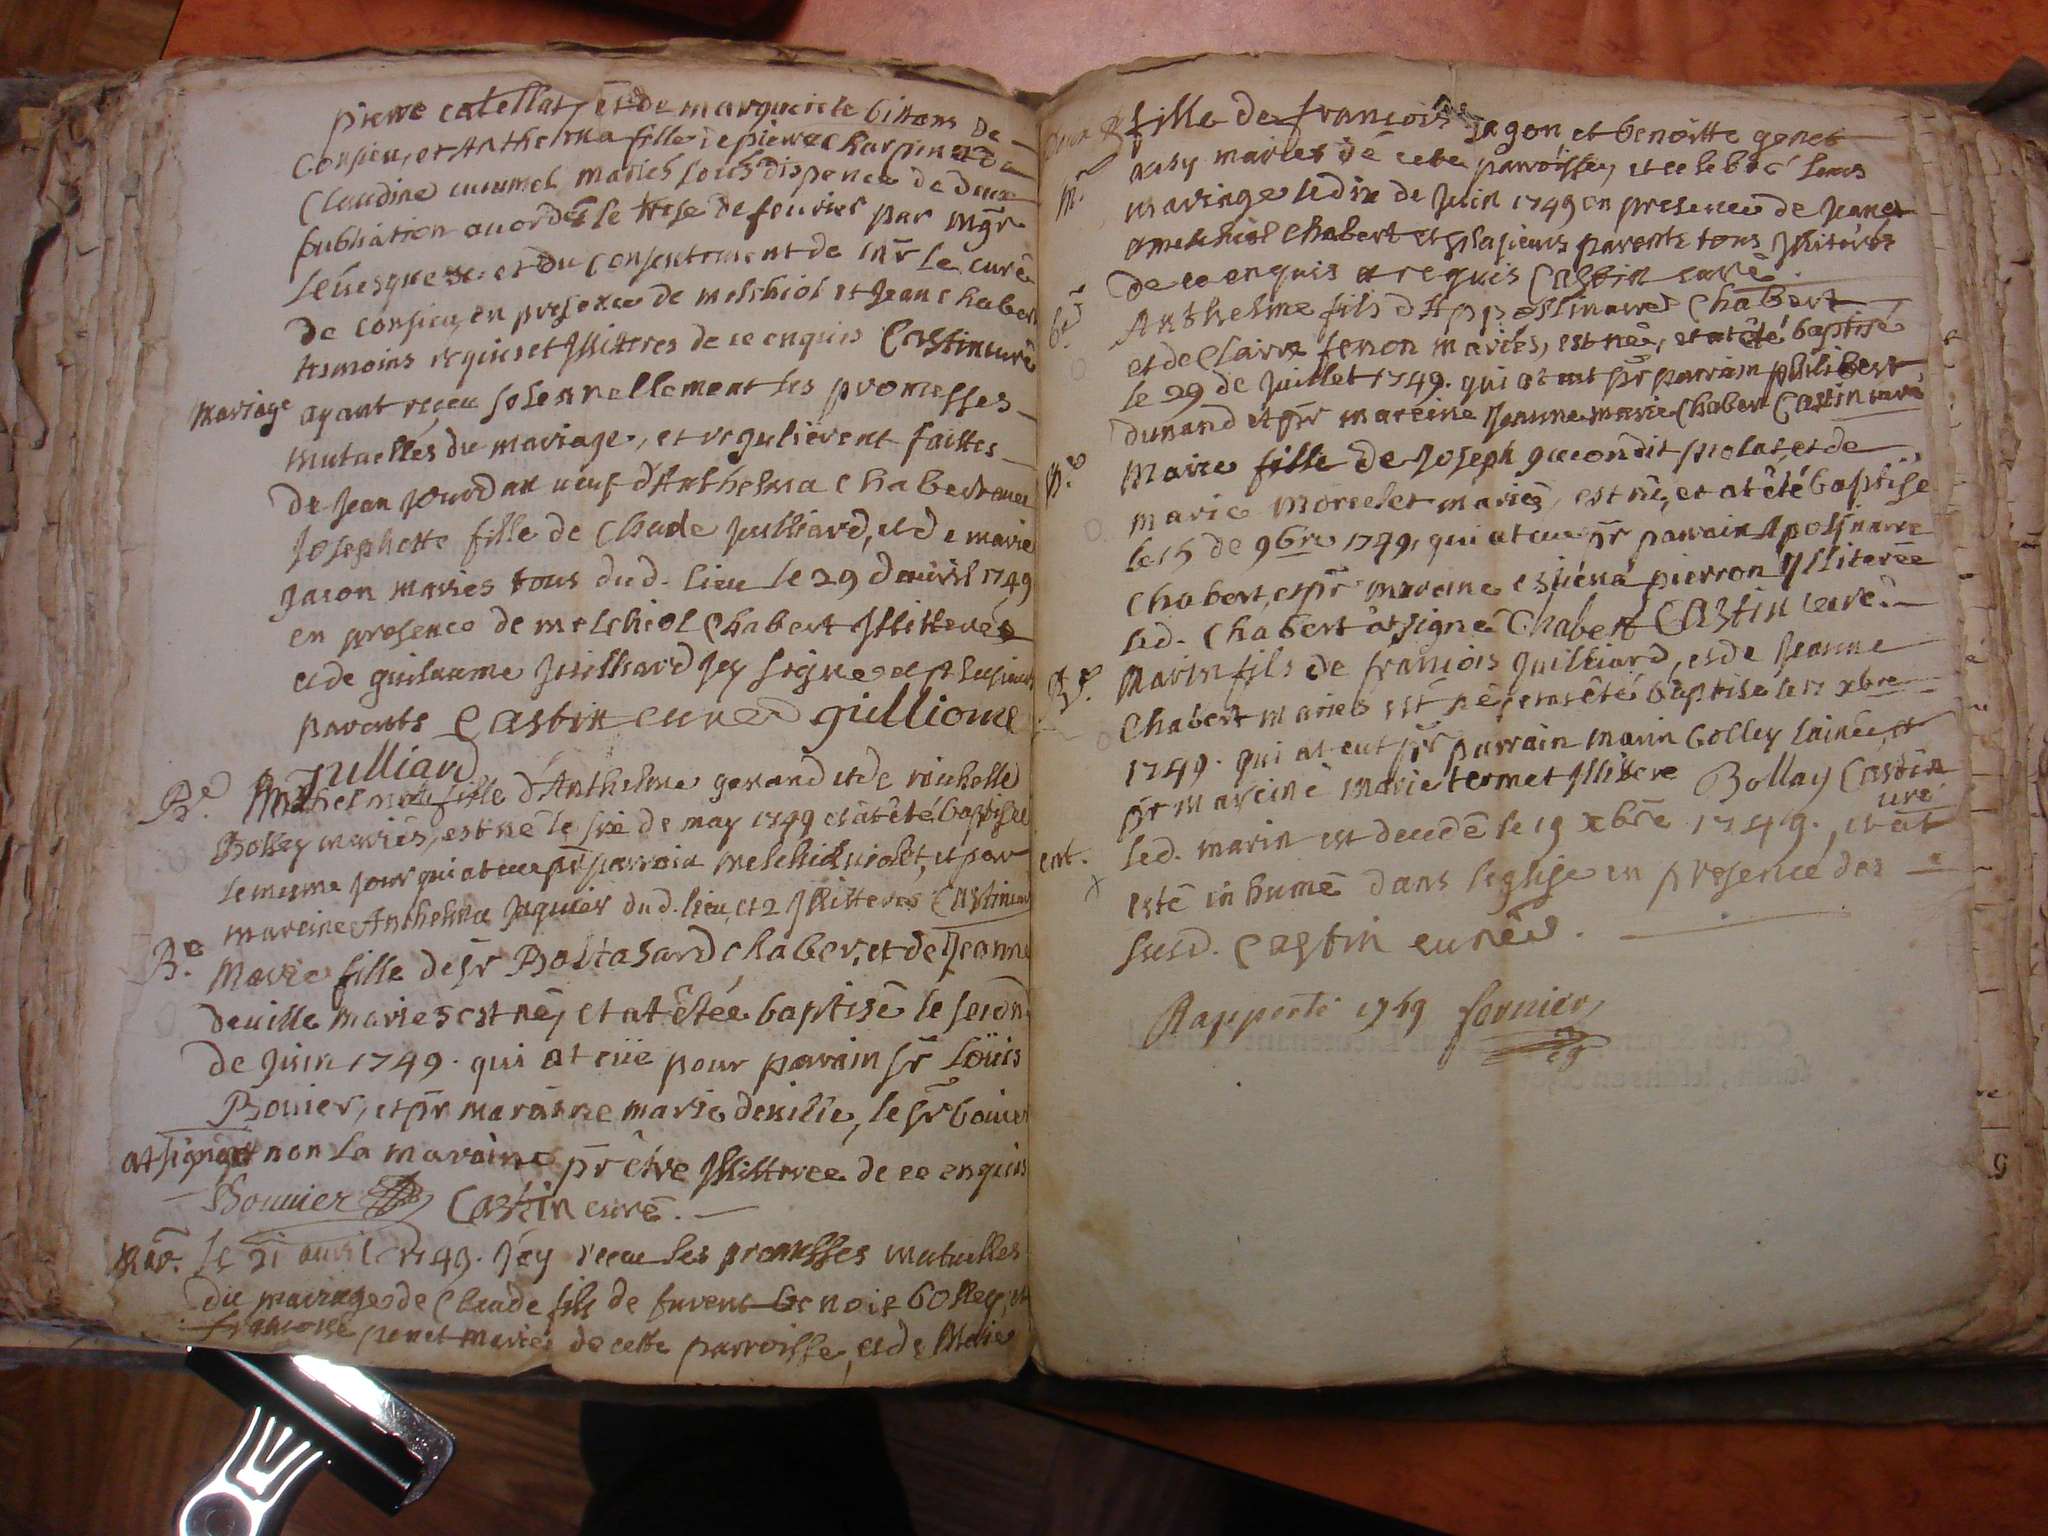 pierre catellat, et de marguerite bittons de
Consieu, et Anthelma fille de pierre Charpin et de
Claudine cucumel mariés sous dispence de deux
publiation acordée le trese de fevrier par Mgr
Levesque et du consentement de mr le curé
de consieu, en presence de melchiol et Jean chabert
temoins requis et Jlliteres de ce enquis Castin curé
Mariage ayant reçeu solennellement les promesses
mutuelles du mariage, et regulierent faittes
de Jean Jourdan veuf d'Anthelma Chabert avec
Josephette fille de Claude Juilliard, et de marie
Jacon mariés tous dud. lieu le 29 d'avril 1749
en presence de melchiol Chabert Jllitteré
et de guilaume Juilliard Jcy signé et plusieurs
parents Castin curé gulliome
Julliard
Be. fille d'Anthelme genand et de michelle
Bolley mariés, est né le de may 1749 et at été baptisée
le mesme jour qui at eue pr parrain melchiol violet, et par
mareine Anthelma Jaquier dud. lieu et 2 Jllitteres Castin curé
Be. Marie fille de Sr Baltasard chaber, et de Jeanne
deville mariés est né, et at étée baptisé le second
de Juin 1749. qui at eüe pour parain Sr Loüis
Bovier, et pr maraine marie deville, le Sr bovier
at signé et non la maraine pr être Jllitteree de ce enquis
Bouvier Castin curé.
Mar. le 21 avril 1749. Jéy receu les promesses mutuelles
du mariage de Claude fils de fuvent benoit bolley, et
francoise penet mariés de cette parroisse, et de Marie
fille de francois Jagon et benoitte genet
mariés de cette parroisse, et celebré leurs
mariage le dix de Juin 1749 en presence de Jean et
melchiol Chabert et plusieurs parents tous Jlliterés
de ce enquis et requis Castin curé.
Anthelme fils d'Appollinaire Chabert
et de Claire fenon mariés, est né, et at été baptisé
le 29 de Juillet 1749. qui at eut pr parrain philibert
dunand et pr mareine Jeanne marie Chabert Castin curé
Be. Marie fille de Joseph gacon dit piolat, et de
marie morcelet mariés, est né, et at été baptise
le 5 de 9bre 1749, qui at eue pr parrain Apolinaire
Chabert, et pr mareine estiena pierron Jlliteree
led. Chabert at signé Chabert Castin curé.
Be. Marin fils de francois Juilliard, et de Jeanne
Chabert mariés est né, et at été baptise le 17 xbre
1749. qui at eut pr parrain marin bolley lainé, et
pr mareine marie termet Jllitere Bollay Castin
curé
ent. led. marin est decedé le 19 xbre 1749. et at
esté inhumé dans leglise en presence des
susd. Castin curé.
Rapporté 1749 fornier